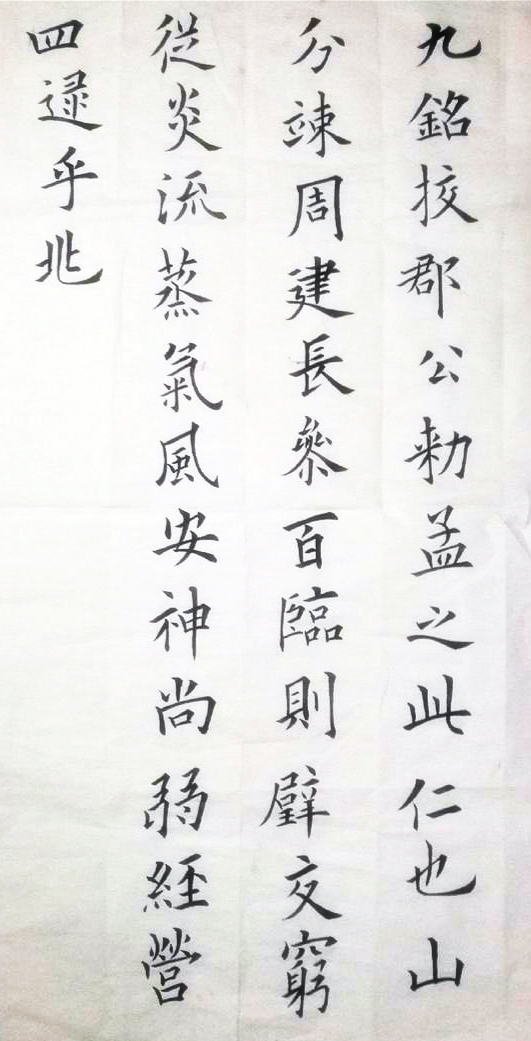 九銘挍郡公勑孟之此仁也山
分竦周建長叅百臨則壁文窮
從炎流蒸氣風安神尚弱經營
四逯乎兆